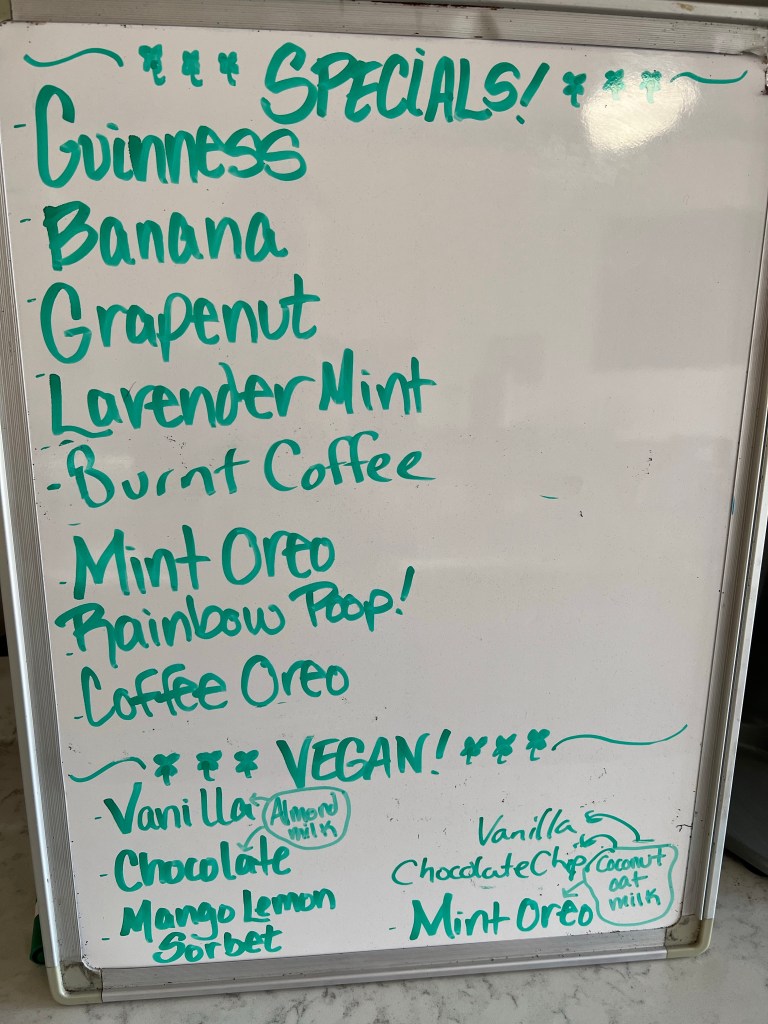 SPECIALS!
- Guinness
- Banana
- Grapenut
- Lavender Mint
- Burnt Coffee
- Mint Oreo
- Rainbow Poop!
- Coffee Oreo
VEGAN!
- Vanilla
Almond
milk
- Chocolate
- Mango Lemon
Sorbet
Vanilla
Chocolate Chip
- Mint Oreo
Coconut
oat
milk